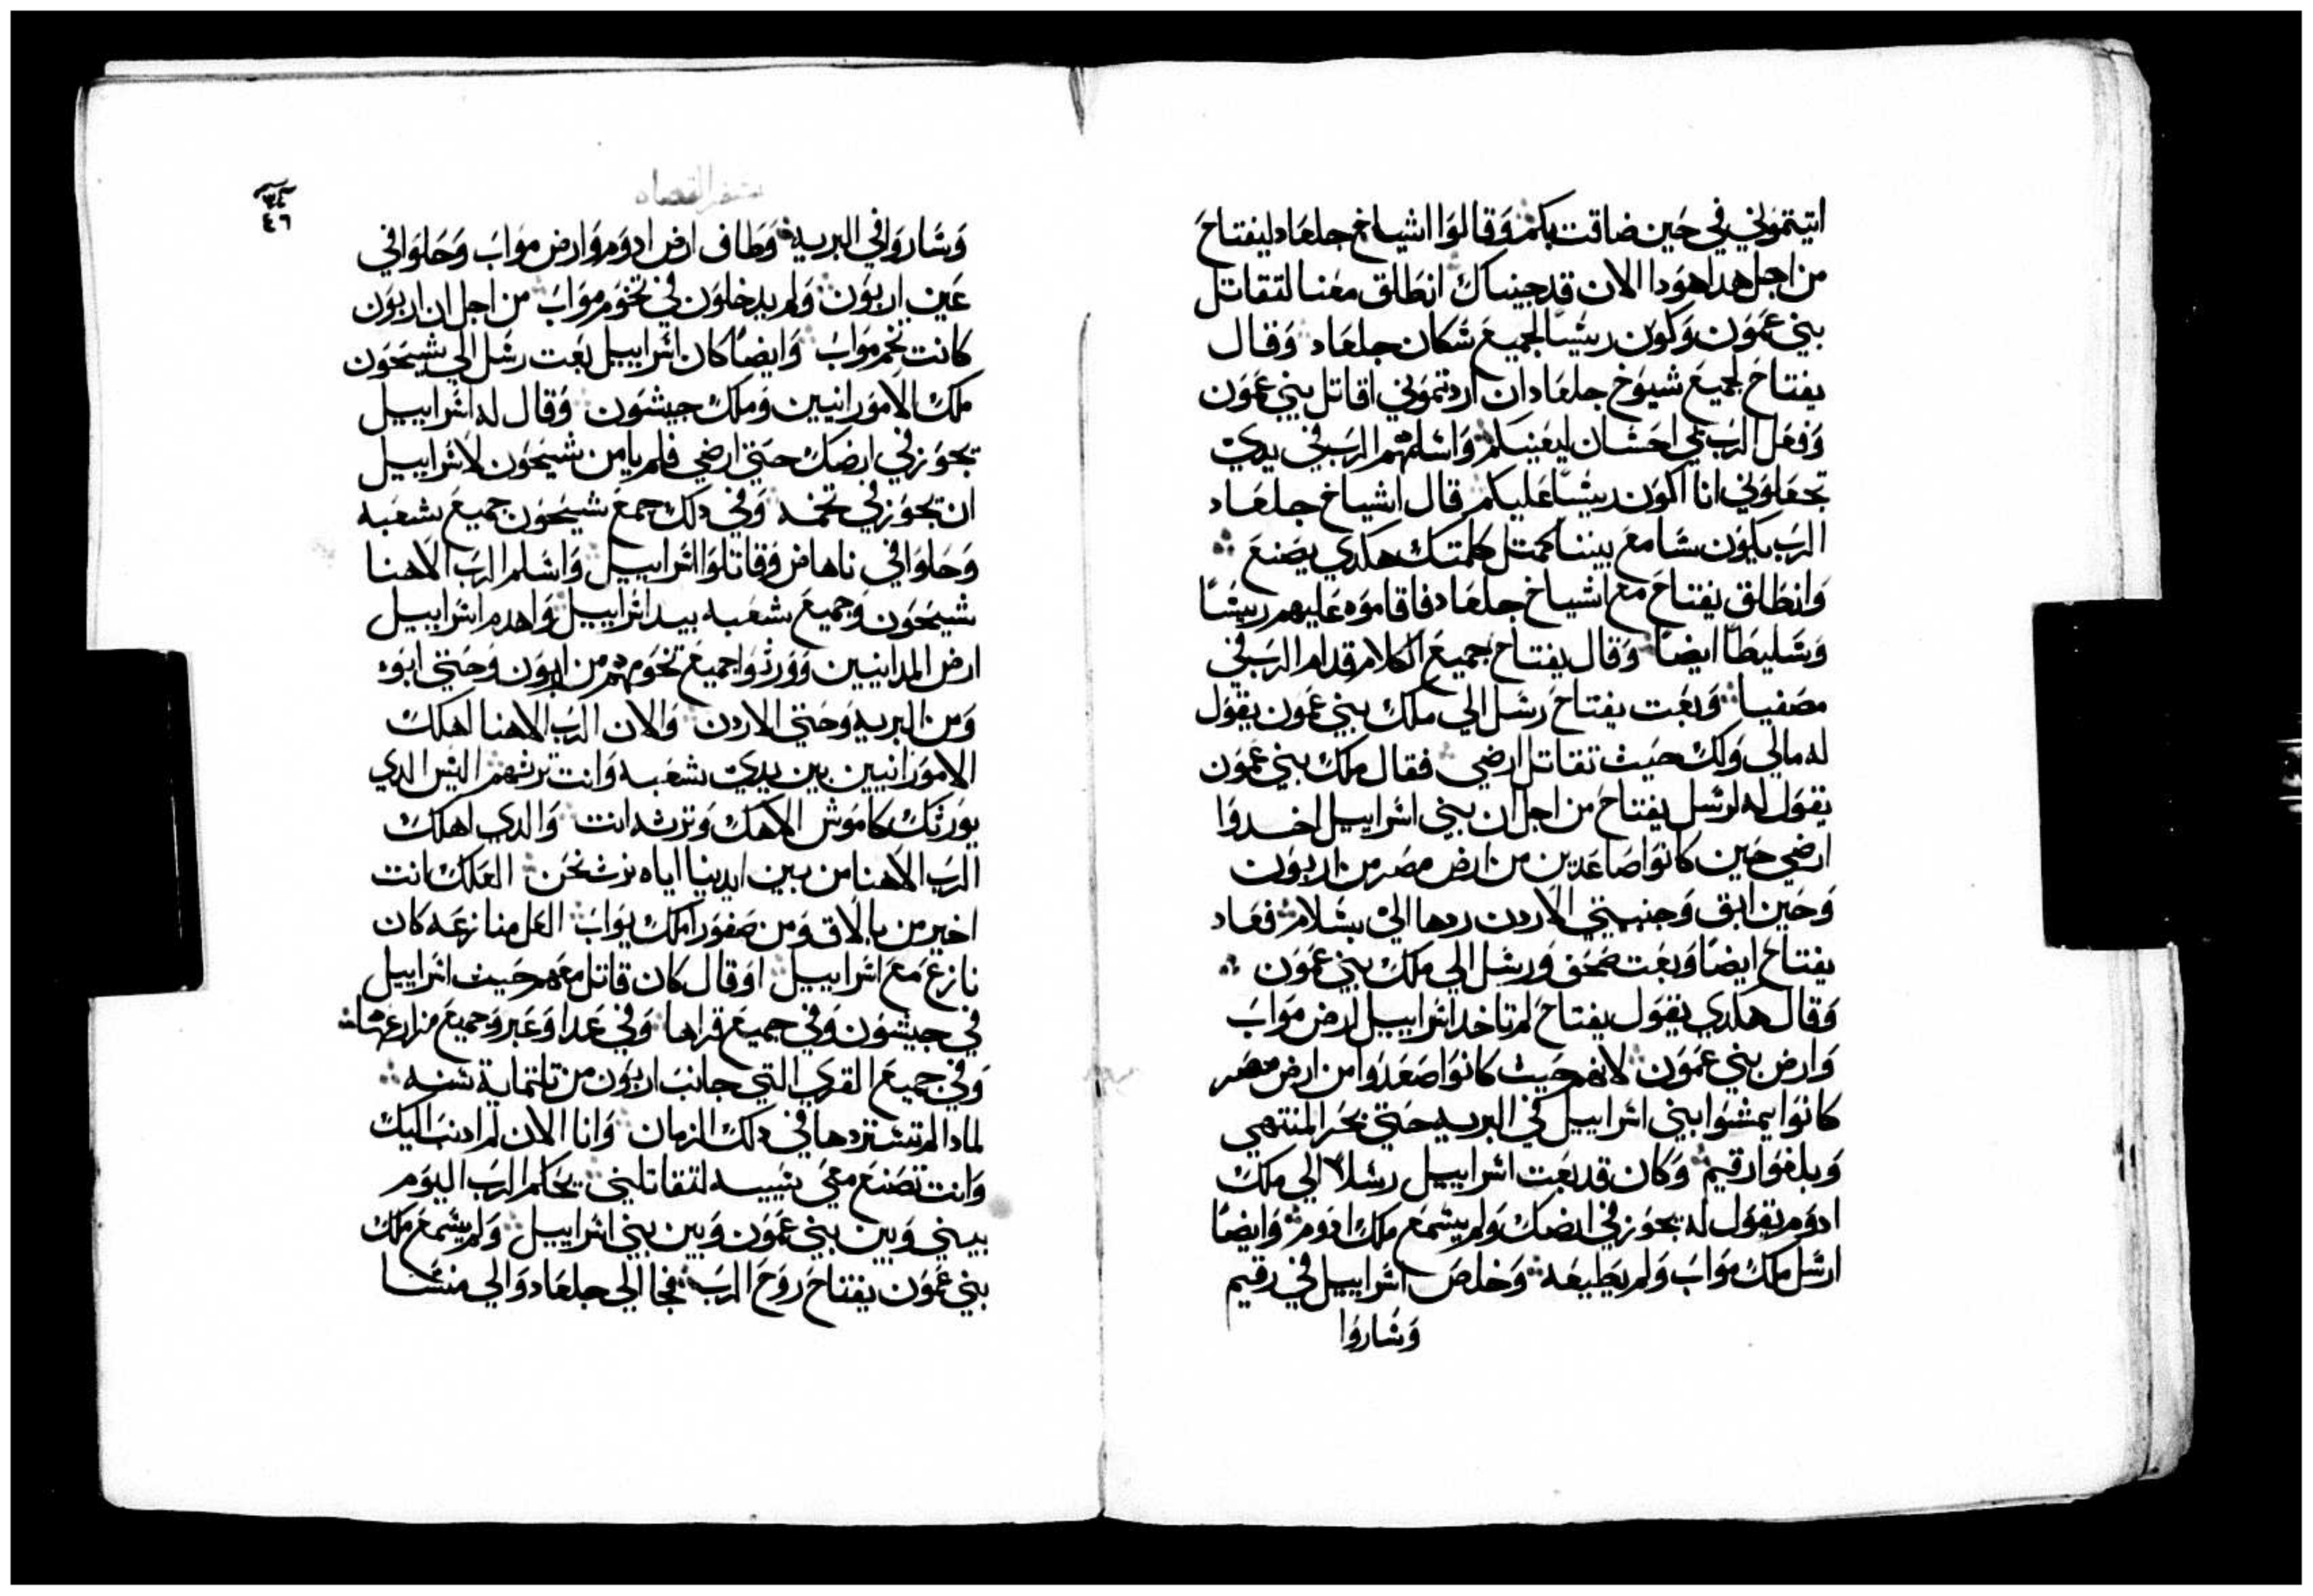 اتيتموني في حين ضاقت بكم وقالوا اشياخ جلعاد ليفتاح
من اجل هدا هودا الان قد جيناك انطلق معنا لتقاتل
بني عمون وكون ريسًا لجميع سكان جلعاد وقال
يفتاح لجميع شيوخ جلعاد ان اردتموني اقاتل بني عمون
وفعل الرب معي احسان ليعينكم واسلمهم الرب في يدي
تجعلوني انا اكون ريسًا عليكم قال اشياخ جلعاد
الرب يكون سامع بيننا كمتل كلمتك هكدي يصنع
وانطلق يفتاح مع اشياخ جلعاد فاقاموه عليهم ريسًا
وسليطًا ايضًا وقال يفتاح جميع الكلام قدام الرب في
مصفيا وبعت يفتاح رسل الي ملك بني عمون يقول
له مالي ولك حيث تقاتل ارضي فقال ملك بني عمون
يقول له لرسل يفتاح من اجل ان بني اسراييل اخدوا
ارضي حين كانوا صاعدين من ارض مصر من اربون
وحين ابق وجنبتي الاردن ردها الي بسلام فعاد
يفتاح ايضًا وبعت ورسل الي ملك بني عمون
وقال هكدي يقول يفتاح لم تاخد اسراييل ارض مواب
وارض بني عمون لانهم حيث كانوا صعدوا من ارض مصر
كانوا يمشوا بني اسراييل في البريه حتي بحر المنتهي
وبلغوا رقيم وكان قد بعت اسراييل رسلًا الي ملك
ادوم يقول له يجوز في ارضك ولم يسمع ملك ادوم وايضًا
ارسل ملك مواب ولم يطيعه وخلص اسراييل في رقيم
وساروا
سفر القضاه
٣٤
٤٦
وساروا في البريه وطاف ارض ادوم وارض مواب وحلوا في
عين اربون ولم يدخلون في تخوم مواب من اجل ان اربون
كانت تخم مواب وايضًا كان اسراييل بعت رسل الي سيحون
ملك الامورانيين وملك حيشون وقال له اسراييل
يجوز في ارضك حتي ارضي فلم يامن سيحون لاسراييل
ان يجوز في تخمه وفي دلك جمع سيحون جميع شعبه
وحلوا في ناهاص وقاتلوا اسراييل واسلم الرب الاهنا
سيحون وجميع شعبه بيد اسراييل واهدم اسراييل
ارض المدانيين وورثوا جميع تخومهم من اربون وحتي ابوه
ومن البريه وحتي الاردن والان الرب الاهنا اهلك
الامورانيين بين يدي شعبه وانت ترثهم اليس الدي
يورثك كاموش الاهك وترثه انت والدي اهلك
الرب الاهنا من بين ايدينا اياه نرث نحن العلك انت
اخير من بالاق ومن صفورا ملك يواب العل منازعه كان
نازع مع اسراييل او قال كان قاتل معهم حيث اسراييل
في جيشون وفي جميع قراها وفي عدا وعبر وجميع مزارعها
وفي جميع القري التي جانب اربون من تلتماية سنه
لمادا لم تستردها في دلك الزمان وانا الان لم ادنب اليك
وانت تصنع معي سييه لتقاتليني يحاكم الرب اليوم
بيني وبين بني عمون وبين بني اسراييل ولم يسمع ملك
بني عمون يفتاح روح الرب فجا الي جلعاد والي منسا